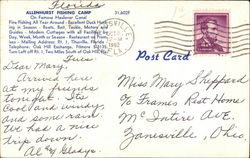 Florida
ALLENHURST FISHING CAMP
On Famous Haulover Canal
31,602F
Fine Fishing All Year Around - Excellent Duck Hunting in Season - Boats, Bait, Tackle, Motors and Guides - Modern Cottages with all Facilities by Day, Week, Month or Season - Restaurant on Premises - Mailing Address: Rt. 1, Titusville, Fla.
Telephone: Oak Hill Exchange, Filmore
Turn Left off Rt. 1, Two Miles South of Oak Hill
Post Card
Tues.
Dear Mary,
Arrived here
at my friends
tonight. Its
cool and windy,
and some rain.
We had a nice
trip down.
Al & Gladys.
Miss Mary Sheppard
To Frames Rest Home
McIntire Ave.
Zanesville, Ohio